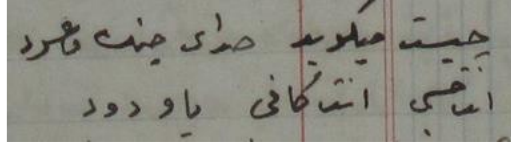 چیست میگوید صدای چنگ و عود
انت حسبی انت کافی یا ودود